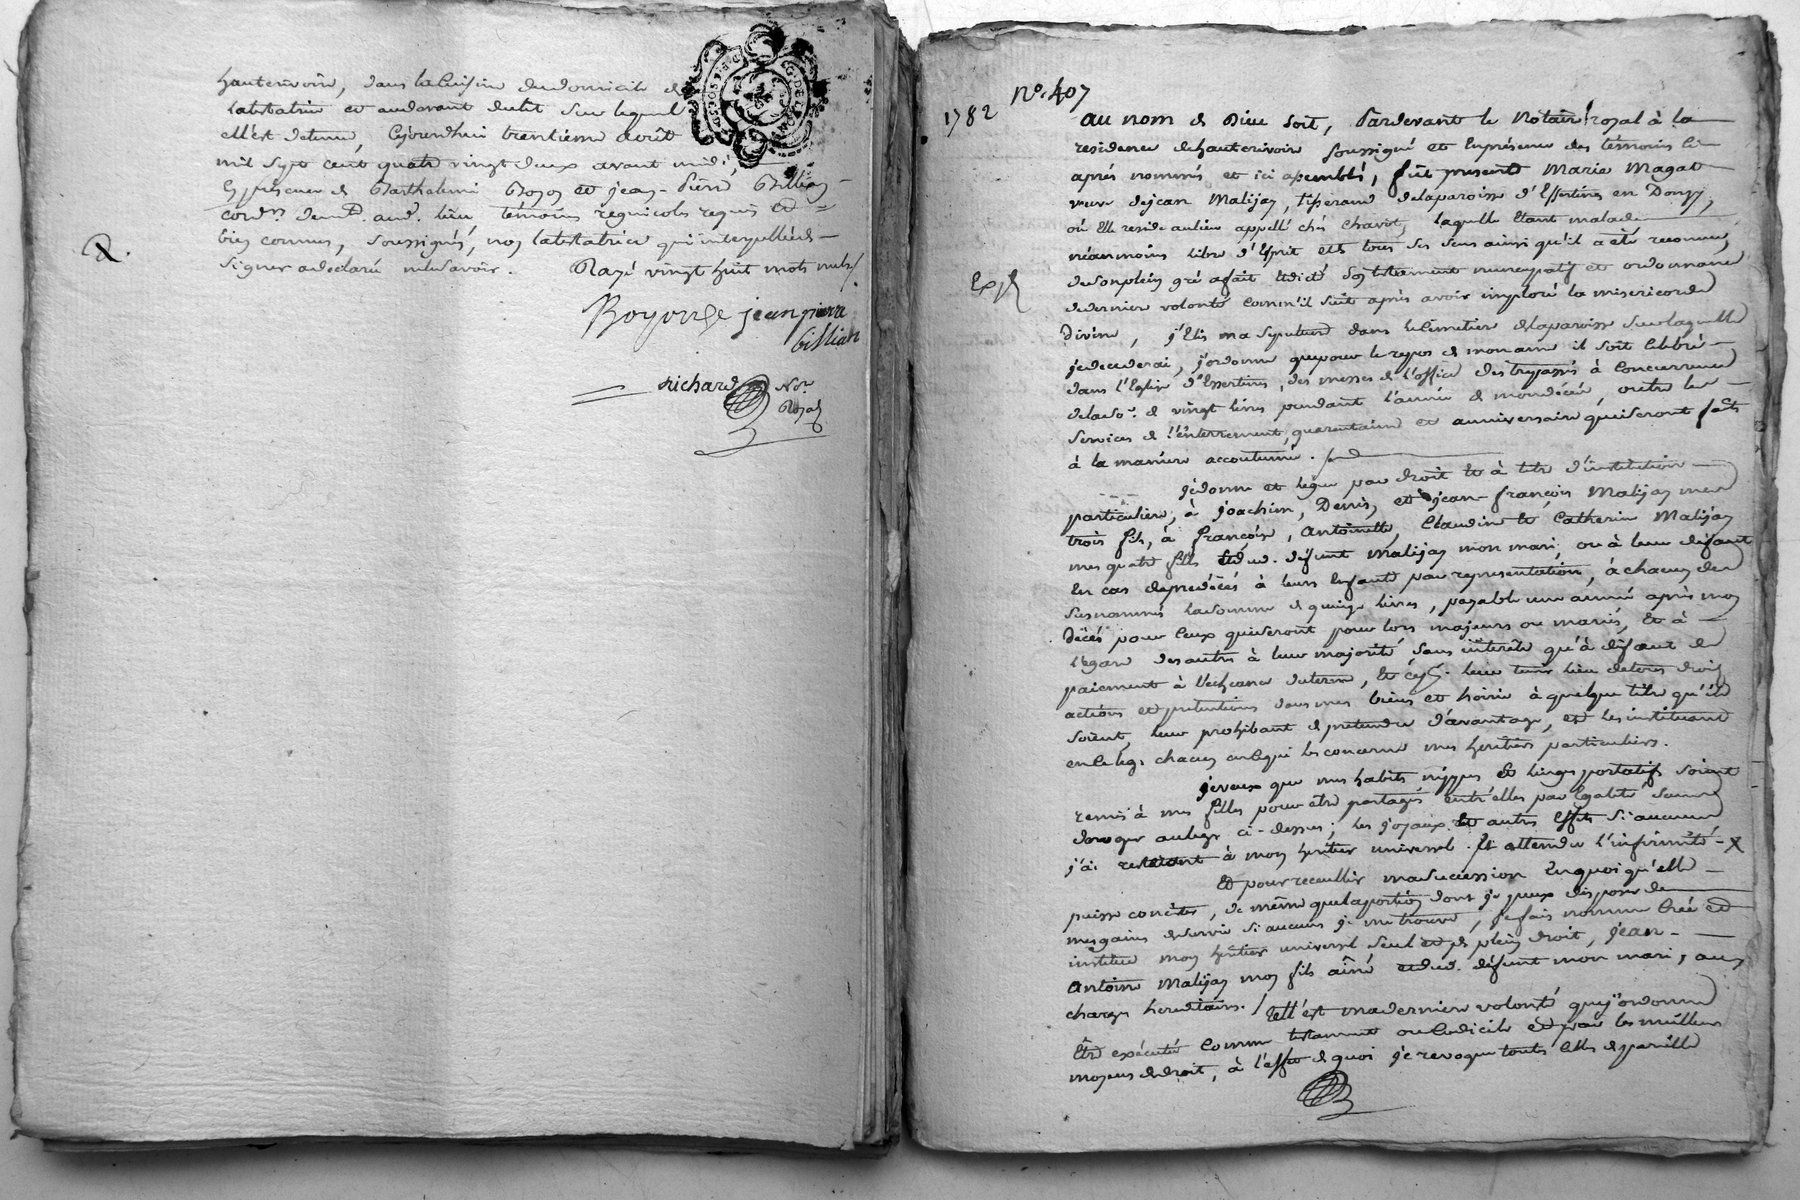 hauterivoire, dans la Cuisine du domicile de
la testatrice et au devant du lit sur lequel
elle est detenue, Cejourdhui trentieme août
mil sept cent quatre vingt deux avant midi,
En présence de Barthelemi Boyon et jean-Pierre Billian
cord.rs dem.t aud. lieu témoins regnicoles requis et
bien connus, Soussignés, non la testatrice qui interpellée de
signer a declaré ne le savoir. Rayé vingt huit mots nuls
R.
Boyon jean pierre
billian
Richard Nore
Royal
1782
N°. 407
Au nom de Dieu soit, Pardevant le Notaire royal à la
residence de hauterivoire soussigné et En présence des témoins Ci
après nommés et ici assemblés, fût presente Marie Magat
veuve de jean Malijay, tisserand de la paroisse d'Essertines en Donzy,
où Elle reside au lieu appellé chés Chavot, laquelle Etant malade
néanmoins libre d'Esprit et de tous ses sens ainsi qu'il a été reconnu,
de son plein gré a fait et dicté son testament nuncupatif et ordonnance
de derniere volonté comm'il suit après avoir imploré la misericorde
Exp.
Divine, j'Elis ma sepulture dans le Cimetiere de la paroisse sur laquelle
je decederai, j'ordonne que pour le repos de mon ame il soit Celebré
dans l'Eglise d'Essertines, des messes de l'office des trepassés à Concurrence
de la so.e de vingt livres pendant l'année de mon décés, outre les
services de l'enterrement, quarentaine et anniversaire qui seront faits
à la maniere accoutumée.
je donne et legue par droit et à titre d'institution
particuliere, à joachim, Denis, et jean-françois Malijay mes
trois fils, à françoise, Antoinette, Claudine et Catherine Malijay
mes quatre filles et dud. defunt Malijay mon mari, ou à leur defaut
En cas de predécés à leurs Enfants par representation, à chacun des
susnommés la somme de quinze livres, payable une année après mon
décés pour Ceux qui seront pour lors majeurs ou mariés, et à
l'egard des autres à leur majorité sans intérêts qu'à defaut de
paiement à l'echeance du terme, et ce leur tenir lieu de tous droits
actions et pretentions dans mes biens et hoirie à quelque titre qu'ils
soient, leur prohibant de pretendre d'avantage, et les instituant
en Ce legs chacun en Ce qui les concerne mes heritiers particuliers.
je veux que mes habits nippes et linges portatifs soient
remis à mes filles pour être partagés entr'elles par Egalité sans
deroger au legs ci-dessus; les joyaux et autres Effets si aucuns
j'ai resteront à mon heritier universel. Et attendu l'infirmité
Et pour recueillir ma succession En quoi qu'elle
puisse consister, de même que la portion dont je peux disposer de
mes gains de survie si aucuns je me trouve, je fais nomme Crée et
institue mon heritier universel seul et de plein droit, jean-
Antoine Malijay mon fils aîné et dud. defunt mon mari, aux
charges hereditaires. Tell'est ma derniere volonté que j'ordonne
Etre exécutée Comme testament ou Codicile et par les meilleurs
moyens de droit, à l'effet de quoi je revoque toutes Celles de pareille